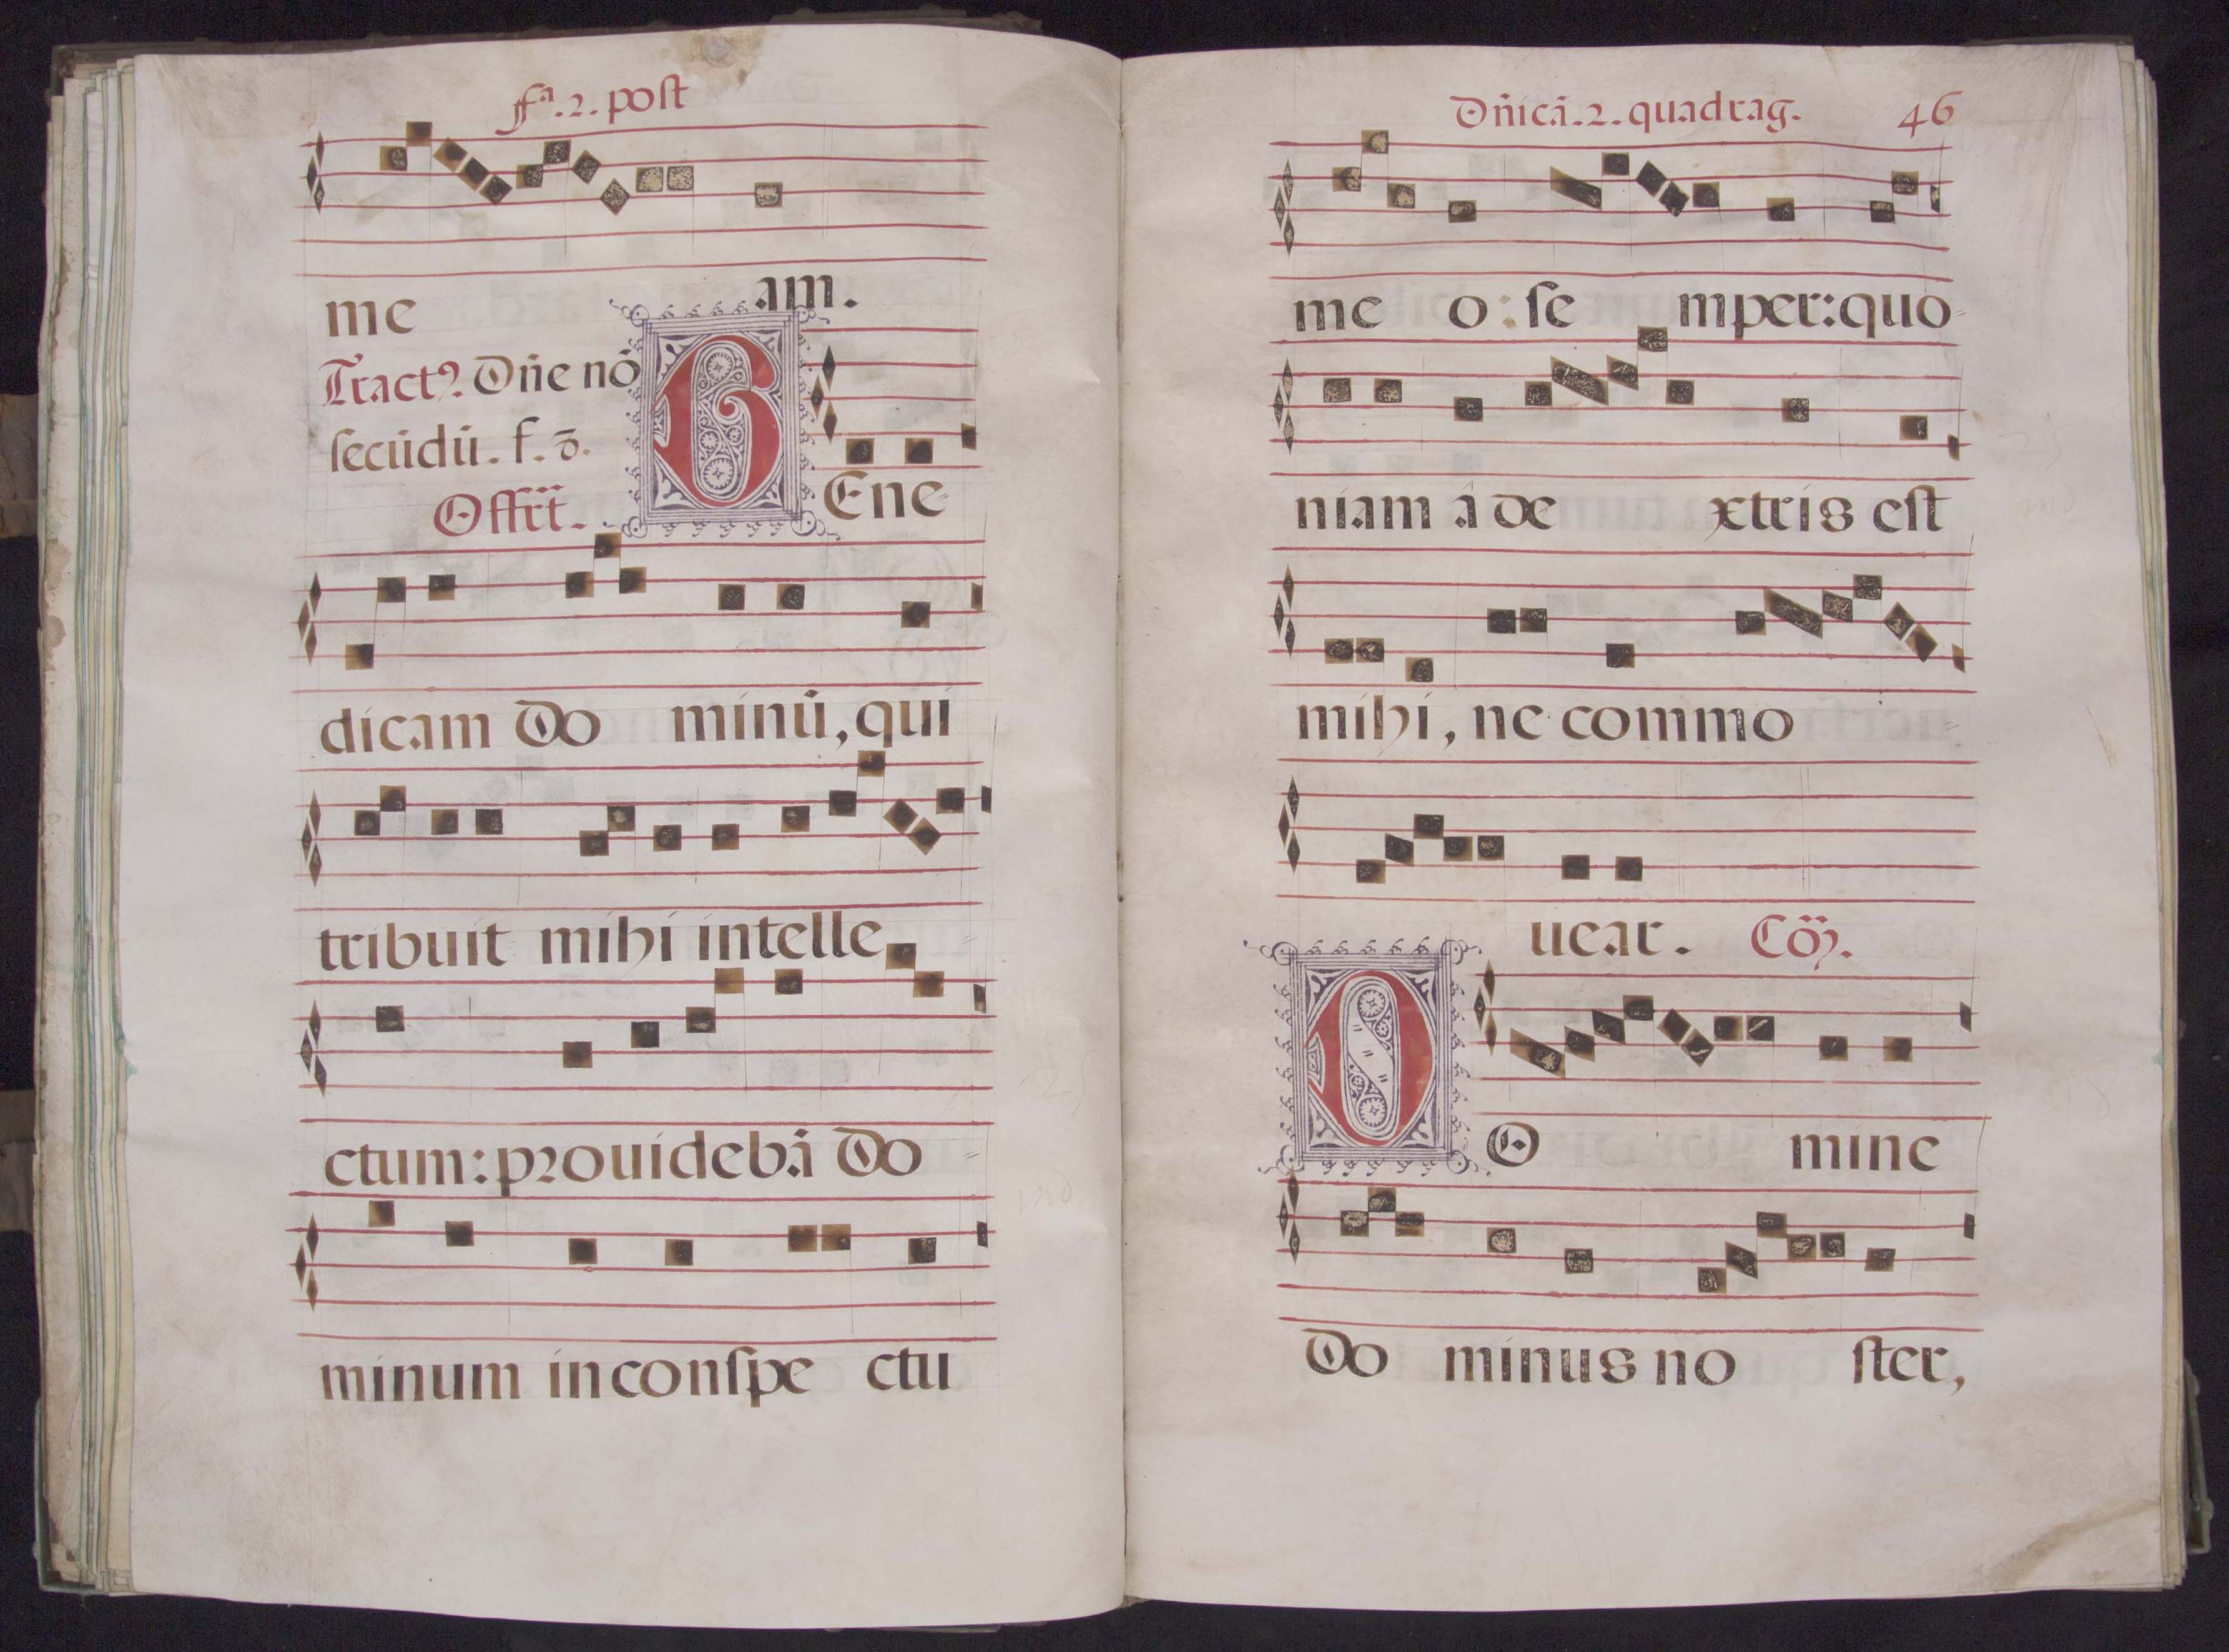 fª. 2. post
me am.
Tractꝰ. Dñe nō
secūdū. f. ō.
Offr̄t. B Ene
dicam Do minū, qui
tribuit mihi intelle
ctum: prouidebā Do
minum in conspe ctu
Dñicā. 2. quadrag. 46
me o: se mper: quo
niam â de xtris est
mihi, ne commo
uear. Cōꝫ.
D O mine
Do minus no ster,